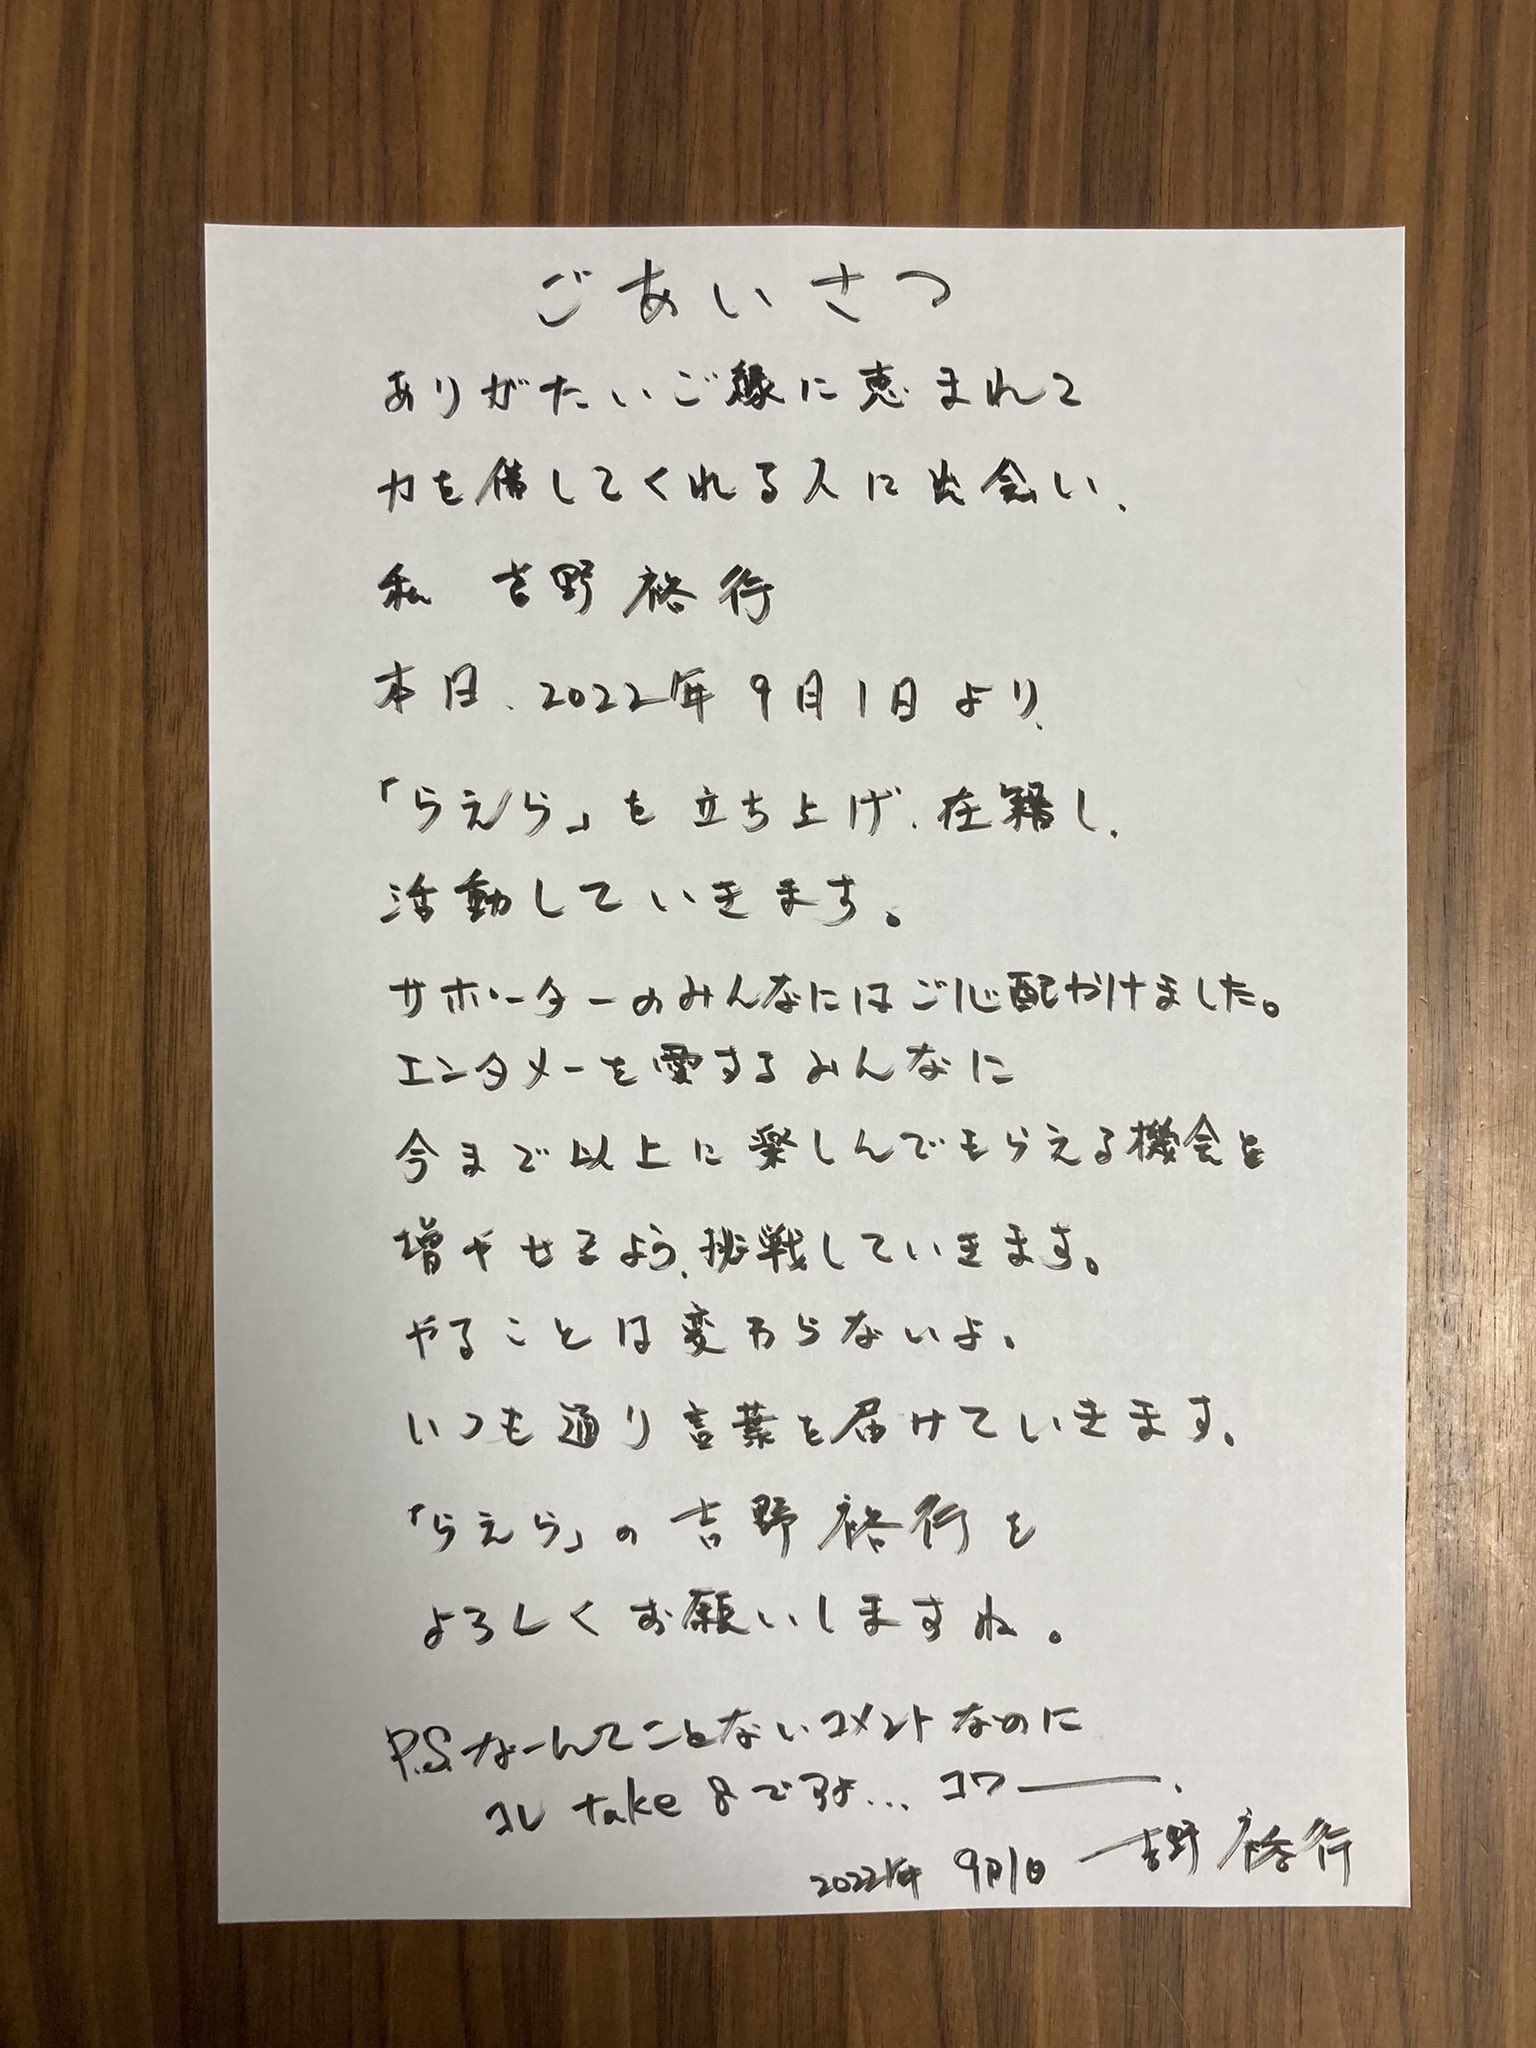 ごあいさつ
ありがたいご縁に恵まれて
力を借してくれる人に出会い、
私 吉野裕行
本日、2022年9月1日より、
「らえら」を立ち上げ、在籍し、
活動していきます。
サポーターのみんなにはご心配かけました。
エンタメーを愛するみんなに
今まで以上に楽しんでもらえる機会を
増やせるよう、挑戦していきます。
やることは変わらないよ。
いつも通り言葉を届けていきます。
「らえら」の吉野裕行を
よろしくお願いしますね。
P.S.なーんてことないコメントなのに
コレ take 8ですよ... コワー.
2022年 9月1日 吉野裕行